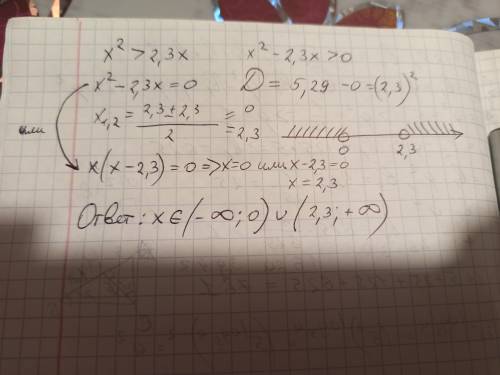 x² > 2,3x x² - 2,3x > 0
x² - 2,3x = 0 D = 5,29 - 0 = (2,3)²
x₁,₂ = (2,3 ± 2,3)/2 = 0
= 2,3
0 2,3
или x(x - 2,3) = 0 => x = 0 или x - 2,3 = 0
x = 2,3
Ответ: x ∈ (-∞; 0) ∪ (2,3; +∞)